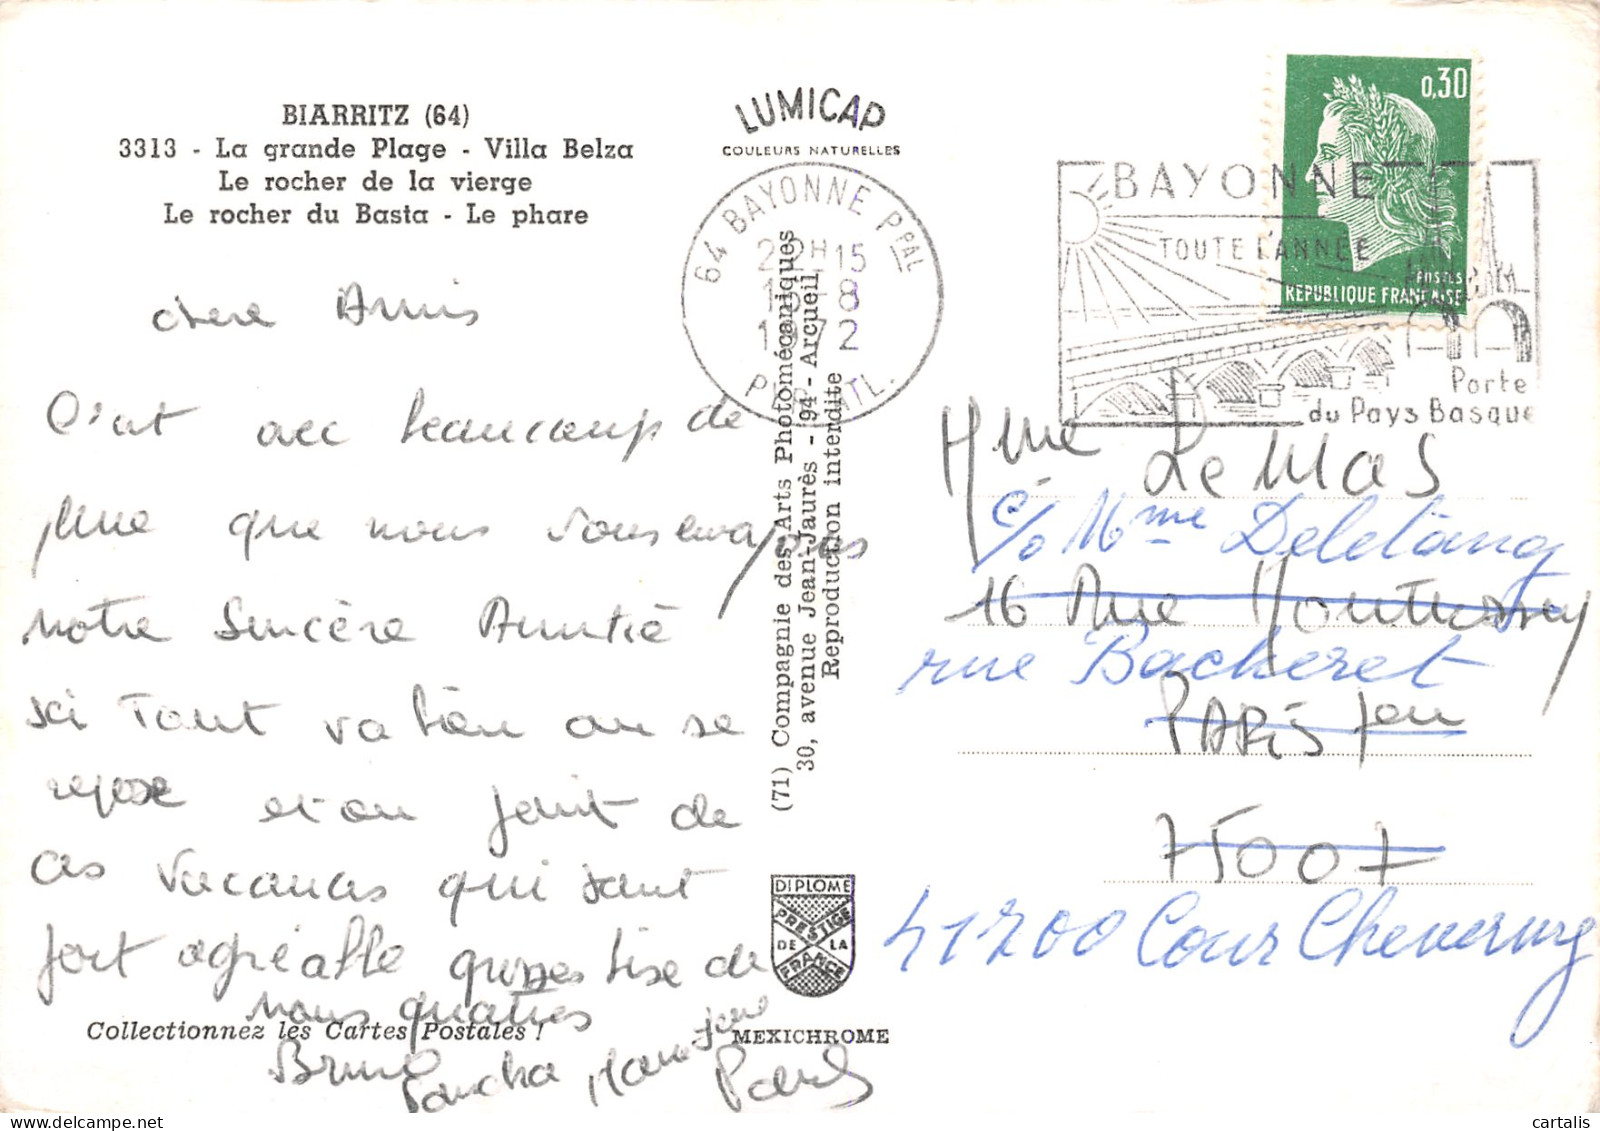 BIARRITZ (64)
3313 - La grande Plage - Villa Belza
Le rocher de la vierge
Le rocher du Basta - Le phare
chere Amis
C'est avec beaucoup de
que nous vous envoyons
notre Sincère Amitié
ici Tout va bien on se
repose et on jouit de
ces vacances qui sont
fort agréable grosses bise de
nous quatres
Bruno Pancha Marie-Jane
Paul
Collectionnez les Cartes Postales !
LUMICAP
COULEURS NATURELLES
64 BAYONNE PPAL
22H15
18-8
1972
(71) Compagnie des Arts Photomécaniques
30, avenue Jean-Jaurès - 94 - Arcueil
Reproduction interdite
DIPLOME
PRESTIGE
DE LA
FRANCE
MEXICHROME
0,30
POSTES
REPUBLIQUE FRANÇAISE
BAYONNE
TOUTE L'ANNÉE
Porte
du Pays Basque
Mme Le Mas
c/o Mme Deletang
16 Rue
rue Bacheret
PARIS 7eme
75007
41700 Cour Cheverny
cartalis on www.delcampe.net